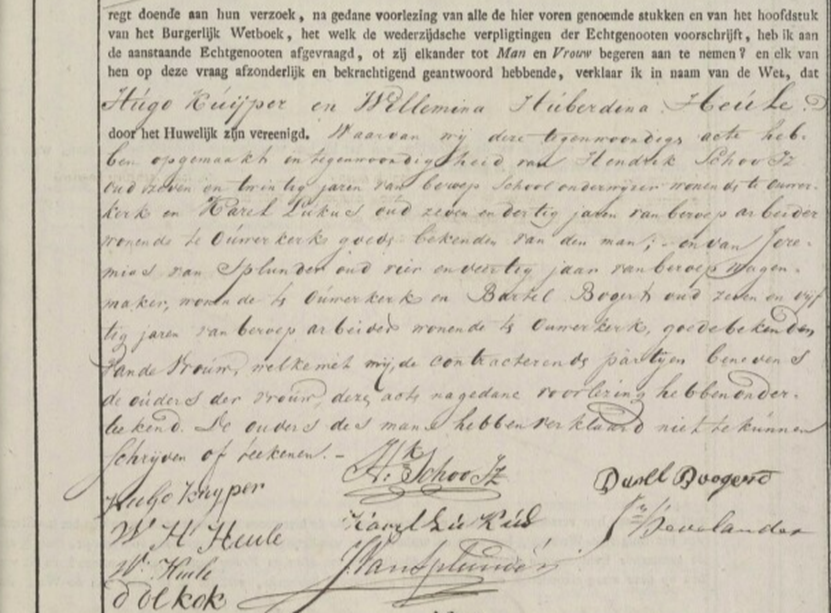 regt doende aan hun verzoek, na gedane voorlezing van alle de hier voren genoemde stukken en van het hoofdstuk
van het Burgerlijk Wetboek, het welk de wederzijdsche verpligtingen der Echtgenooten voorschrijft, heb ik aan
de aanstaande Echtgenooten afgevraagd, of zij elkander tot Man en Vrouw begeren aan te nemen? en elk van
hen op deze vraag afzonderlijk en bekrachtigend geantwoord hebbende, verklaar ik in naam van de Wet, dat
Hugo Kuijper en Willemina Huberdina Heule
door het Huwelijk zijn vereenigd. Waarvan wij deze tegenwoordige acte heb-
ben opgemaakt in tegenwoordigheid van Hendrik Schoo Jz
oud zeven en twintig jaren van beroep School onderwijzer wonende te Ouwer-
kerk en Karel Lukus oud zeven en dertig jaren van beroep arbeider
wonende te Ouwerkerk goede bekenden van den man; en van Jere-
mias van Splunder oud vier en veertig jaar van beroep wagen-
maker, wonende te Ouwerkerk en Bartel Bogert oud zeven en vijf
tig jaren van beroep arbeider wonende te Ouwerkerk, goede bekenden
van de vrouw, welke met mij, de contracterende partyen benevens
de ouders der vrouw, deze acte na gedane voorlezing hebben onder-
teekend. De ouders des mans hebben verklaard niet te kunnen
schrijven of teekenen. -
Hugo Kuyper
H: Schoo Jz
Bartel Boogerd
W H Heule
Karel
Bevelander
W. Heule
J. Van Splunder
D Ĺ kok